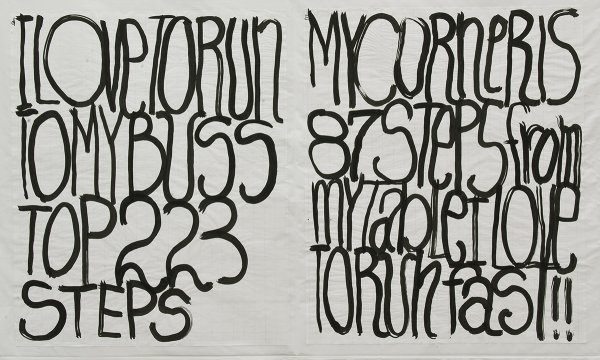 I LOVe TO RUn
TO MY BUSS
TOP 223
STEPS
MY CORneR IS
87 STePS from
my Table I LOVe
TO RUn fast!!